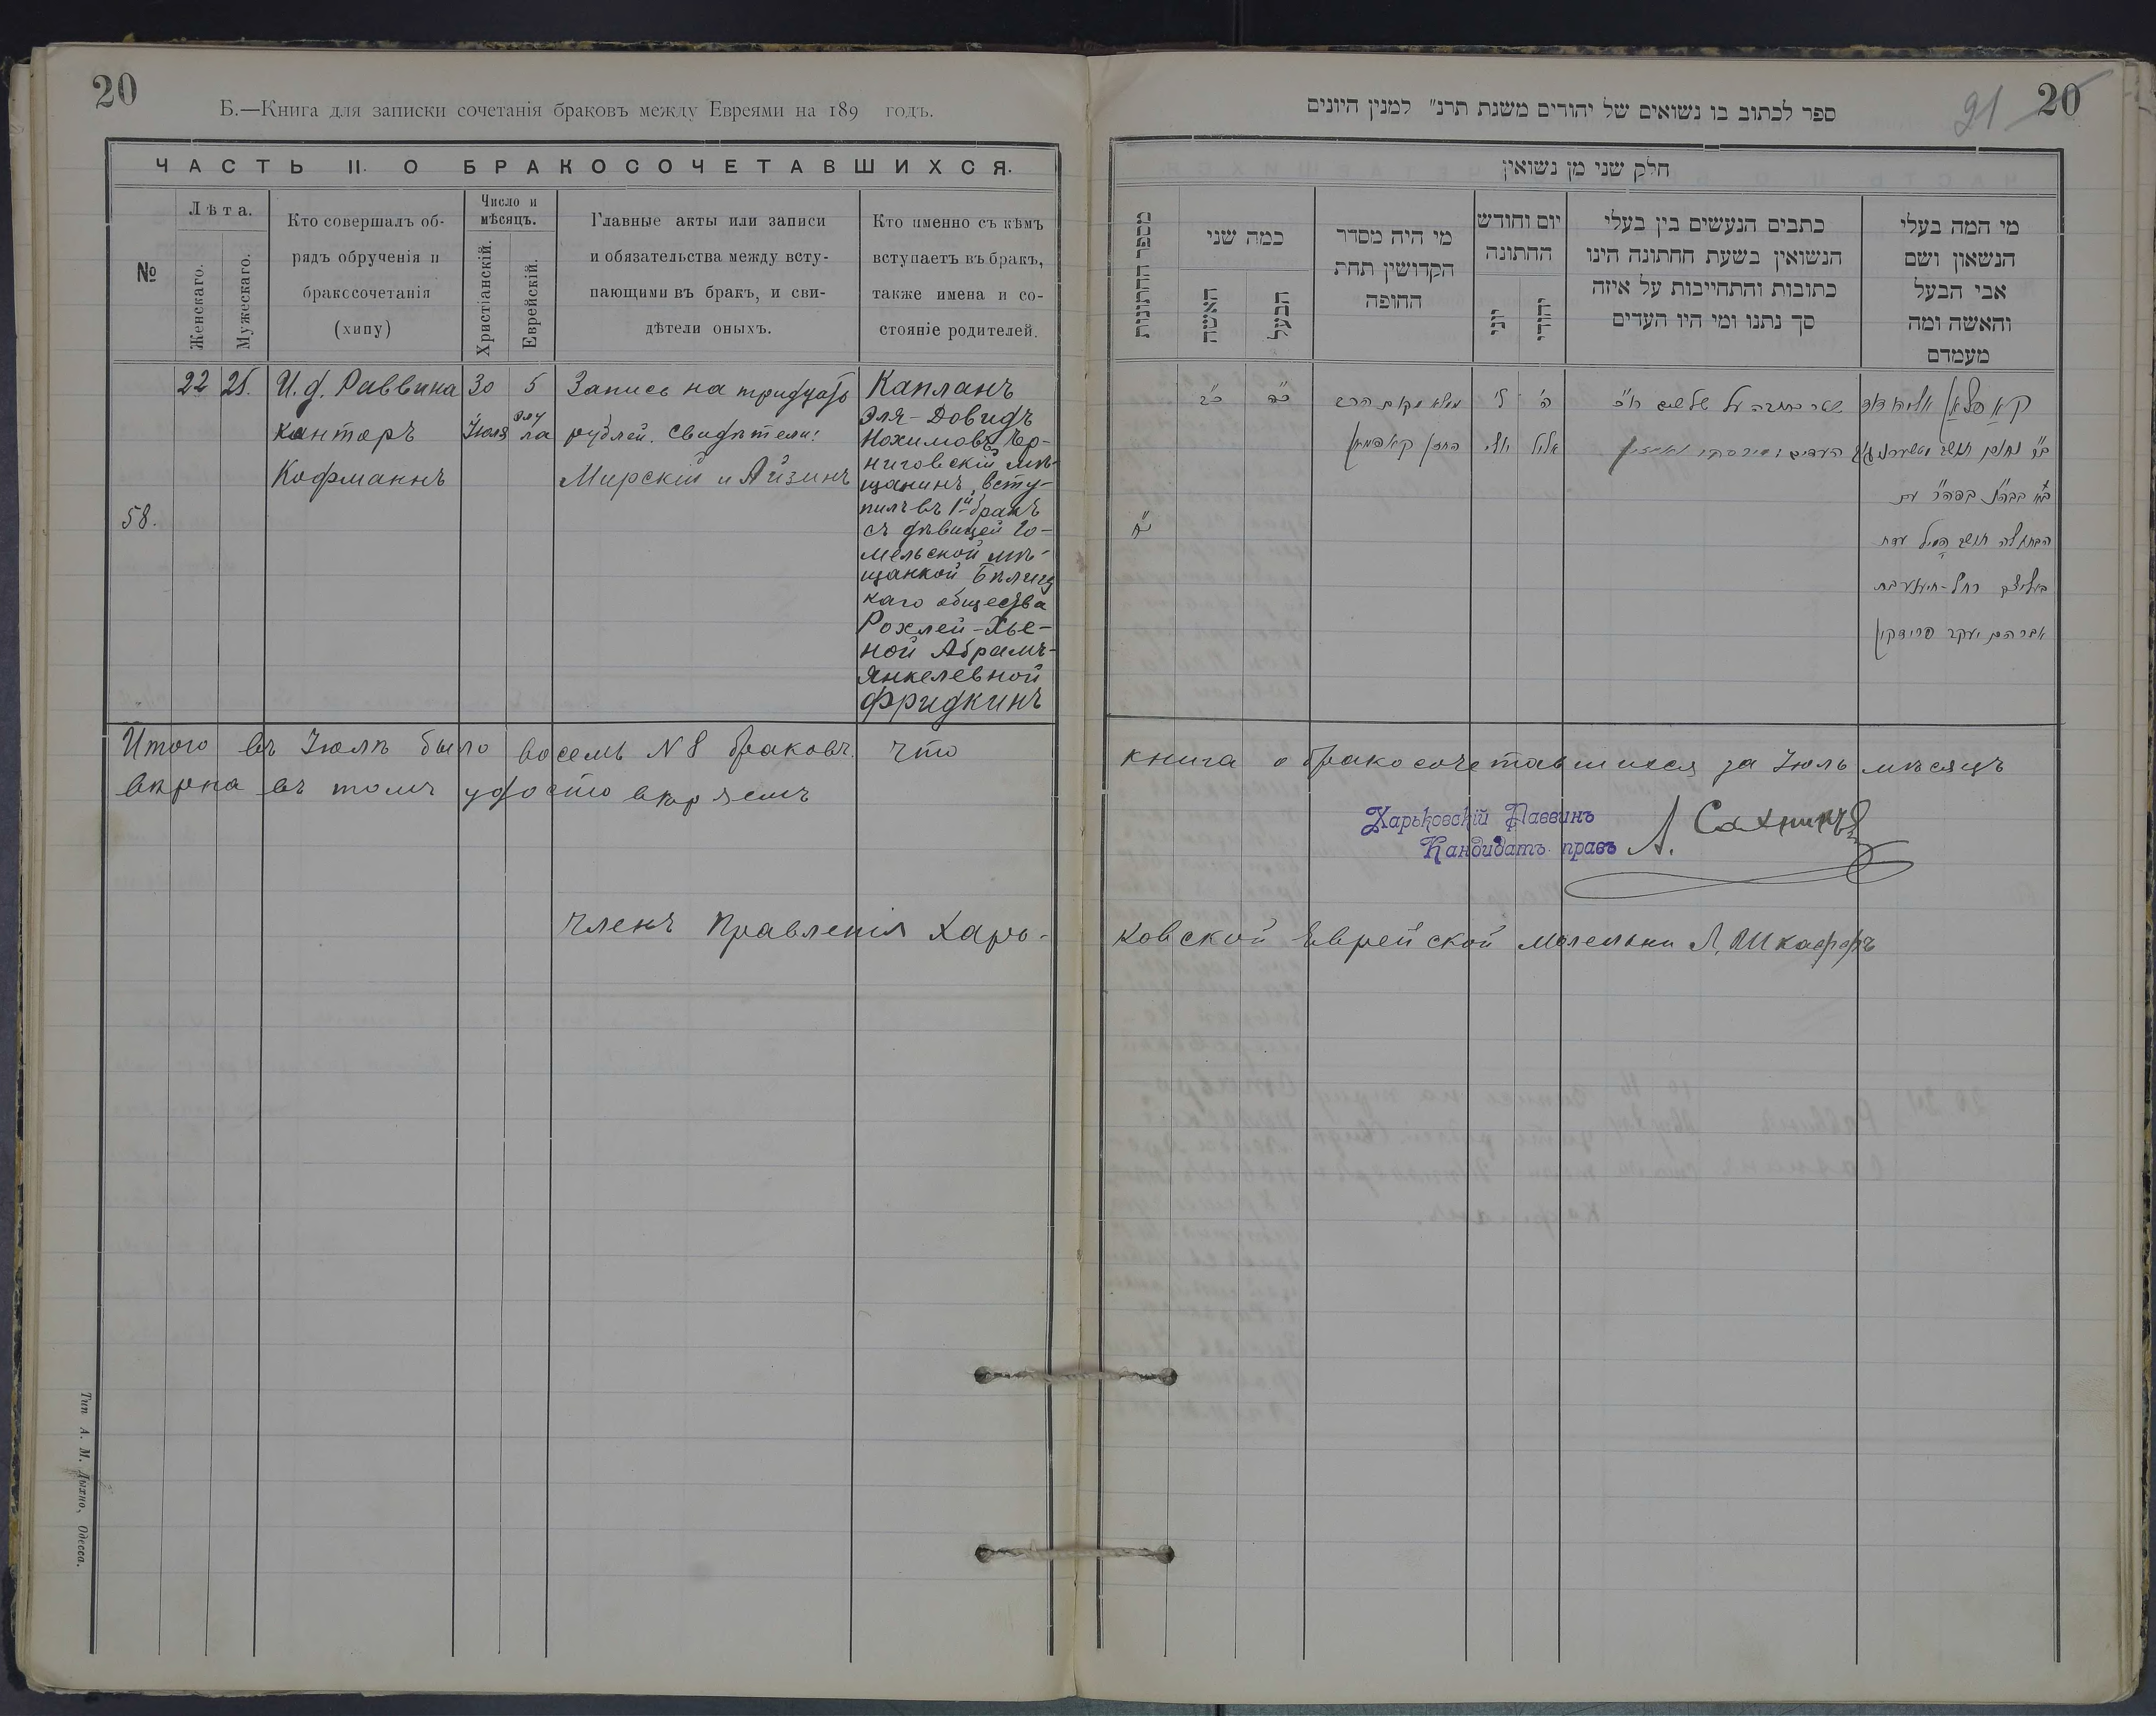 20
Б.—Книга для записки сочетанія браковъ между Евреями на 189 годъ.
ЧАСТЬ II. О БРАКОСОЧЕТАВШИХСЯ.
№
Лѣта.
Женскаго.
Мужескаго.
Кто совершалъ об-
рядъ обрученія и
бракосочетанія
(хипу)
Число и
мѣсяцъ.
Христіанскій.
Еврейскій.
Главные акты или записи
и обязательства между всту-
пающими въ бракъ, и сви-
дѣтели оныхъ.
Кто именно съ кѣмъ
вступаетъ въ бракъ,
также имена и со-
стояніе родителей.
58.
22
25.
И. д. Раввина
канторъ
Кофманнъ
30
Іюля
5
Элу
ла
Запись на тридцать
рублей. Свидѣтели:
Мирскій и Айзинъ
Капланъ
Эля-Довидъ
Нохимовъ Чер-
ниговскій мѣ-
щанинъ, всту-
пилъ въ 1й бракъ
съ дѣвицей Го-
мельской мѣ-
щанкой Бѣлиц
каго общества
Рохлей-Хье-
ной Абрамъ-
Янкелевной
Фридкинъ
Итого въ Іюлѣ было восемь N 8 браковъ. что
вѣрна въ томъ удостовѣряемъ
Членъ Правленія Харь-
Тип А. М. Дыхно, Одесса.
ספר לכתוב בו נשואים של יהודים משנת תרנ״ למנין היונים
91
20
חלק שני מן נשואין
מי המה בעלי
הנשאון ושם
אבי הבעל
והאשה ומה
מעמדם
כתבים הנעשים בין בעלי
הנשואין בשעת החתונה הינו
כתובות והתחייבות על איזה
סך נתנו ומי היו העדים
יום וחודש
החתונה
יהודי
יוני
מי היה מסדר
הקדושין תחת
החופה
כמה שני
הבעל
האשה
מספר החתונות
קאפלאן אליה דוד
שטר כתובה על שלשים
ה׳
אלול
ל׳
יולי
ממלא מקום הרב
החזן קאפמאן
כ״ה
כ״ב
נ״ח
אברהם יעקב פרידקין
книга о бракосочетавшихся за Іюль мѣсяцъ
Харьковскій Раввинъ
Кандидатъ правъ
ковской Еврейской молельни Л. Шкаффъ